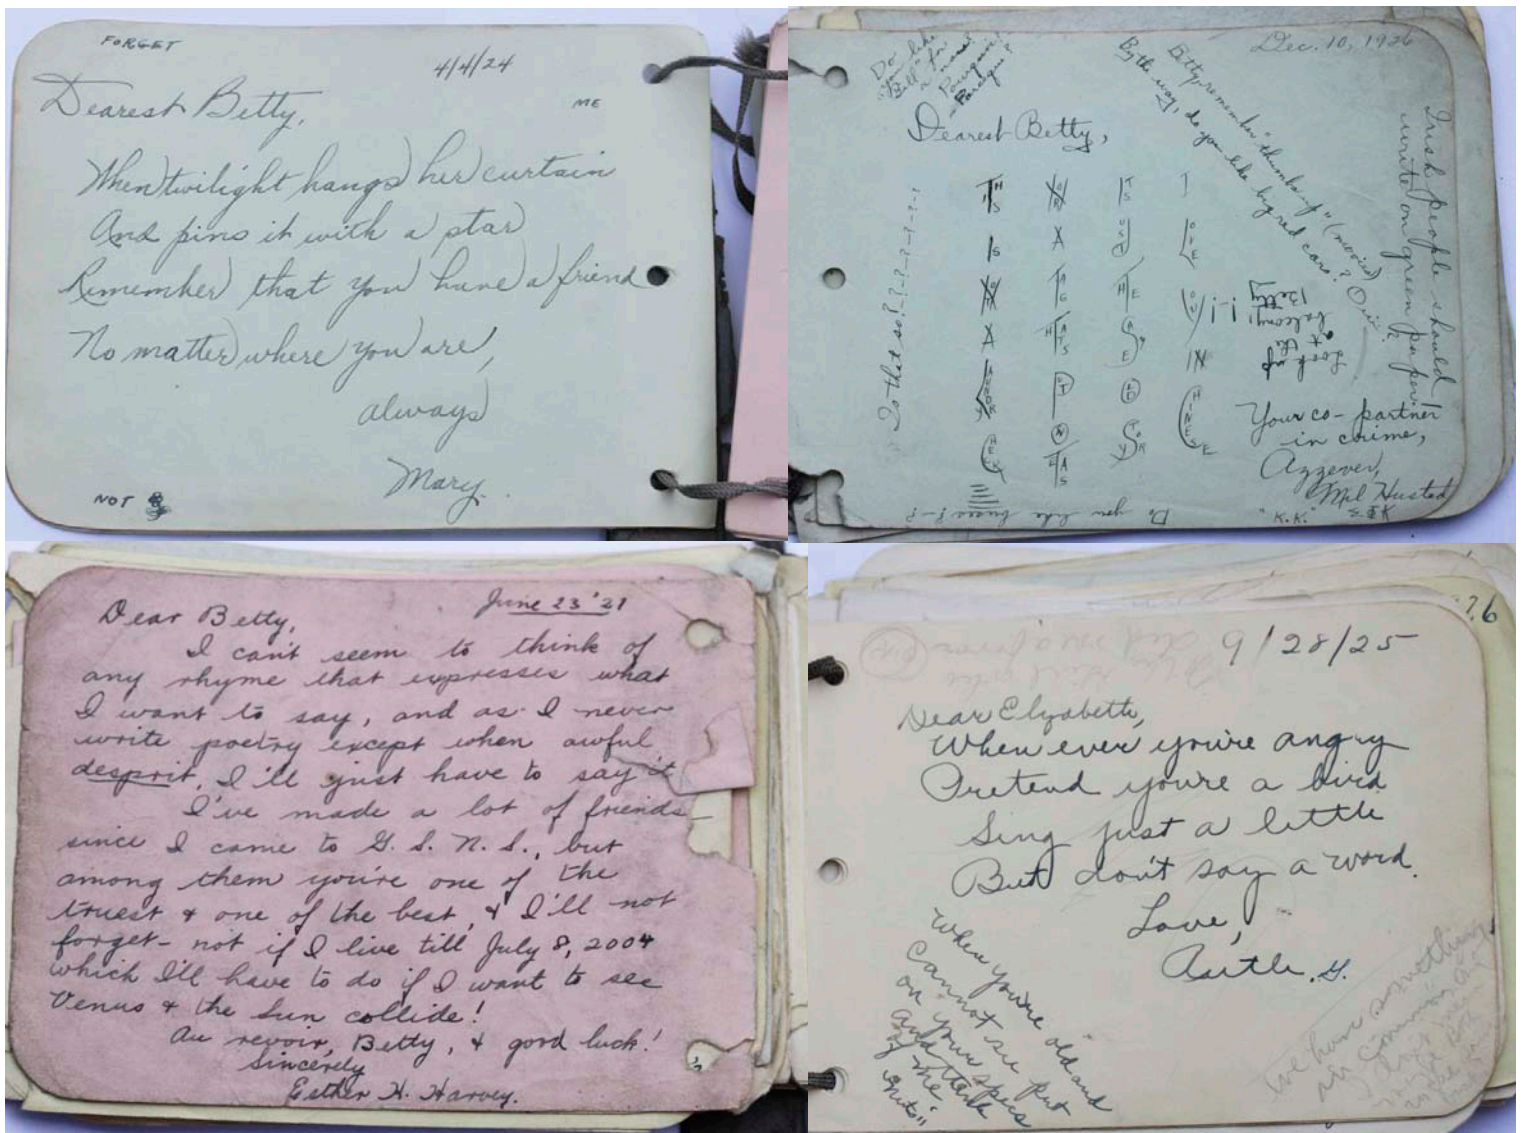 FORGET
4/4/24
Dearest Betty,
ME
When twilight hangs her curtain
And pins it with a star
Remember that you have a friend
No matter where you are,
always
Mary.
NOT
Dec. 10, 1926
Do
you like
"Bill" for
a name?
Dearest Betty,
Betty, remember "thumbs up" (movies)? Oui.
By the way, do you like big red cars?
Irish people should
write on green paper!
Is that so?-?-?-?-?-?-?
THIS
IS
A
IS
A
TAG
THATS
PUT
ON
TEAS
ITS
USD
THE
SAE
TO
STORY
I
LOVE
YOU
IN
CHINESE
Look up
at the
balcony,
Betty!
Your co-partner
in crime,
Azzever,
Mil Husted
"K.K."
Do you like buses?-?
Dear Betty,
June 23 '21
I can't seem to think of
any rhyme that expresses what
I want to say, and as I never
write poetry except when awful
desprit, I'll just have to say it
I've made a lot of friends
since I came to G. S. N. S., but
among them you're one of the
truest & one of the best, & I'll not
forget - not if I live till July 8, 2004
which I'll have to do if I want to see
Venus & the Sun collide!
Au revoir, Betty, & good luck!
Sincerely
Esther H. Harvey.
?.6
9/28/25
Dear Elizabeth,
When ever you're angry
Pretend you're a bird
Sing just a little
But don't say a word.
Love,
G.
When you're old and
cannot see put
on your specs
and think
of me
We have something
in common